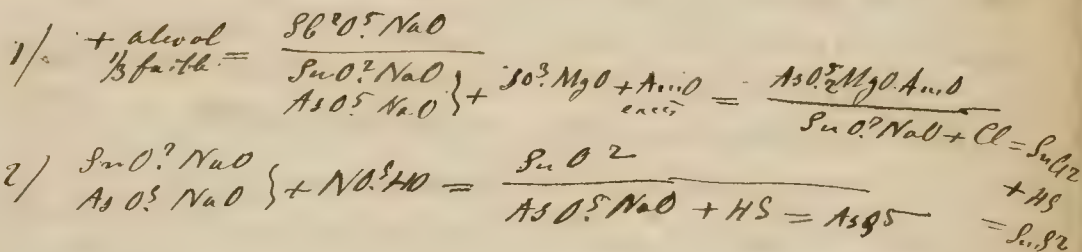 1/. + alcool 1/3 faible = Sb²O⁵. NaO
SnO². NaO
AsO⁵. NaO } + SO³. MgO + AmO excès = AsO⁵. 2MgO. AmO
SnO². NaO + Cl = SnCl2
+ HS
= SnS2
2/ SnO². NaO
AsO⁵. NaO } + NO⁵. HO = SnO²
AsO⁵. NaO + HS = AsS⁵